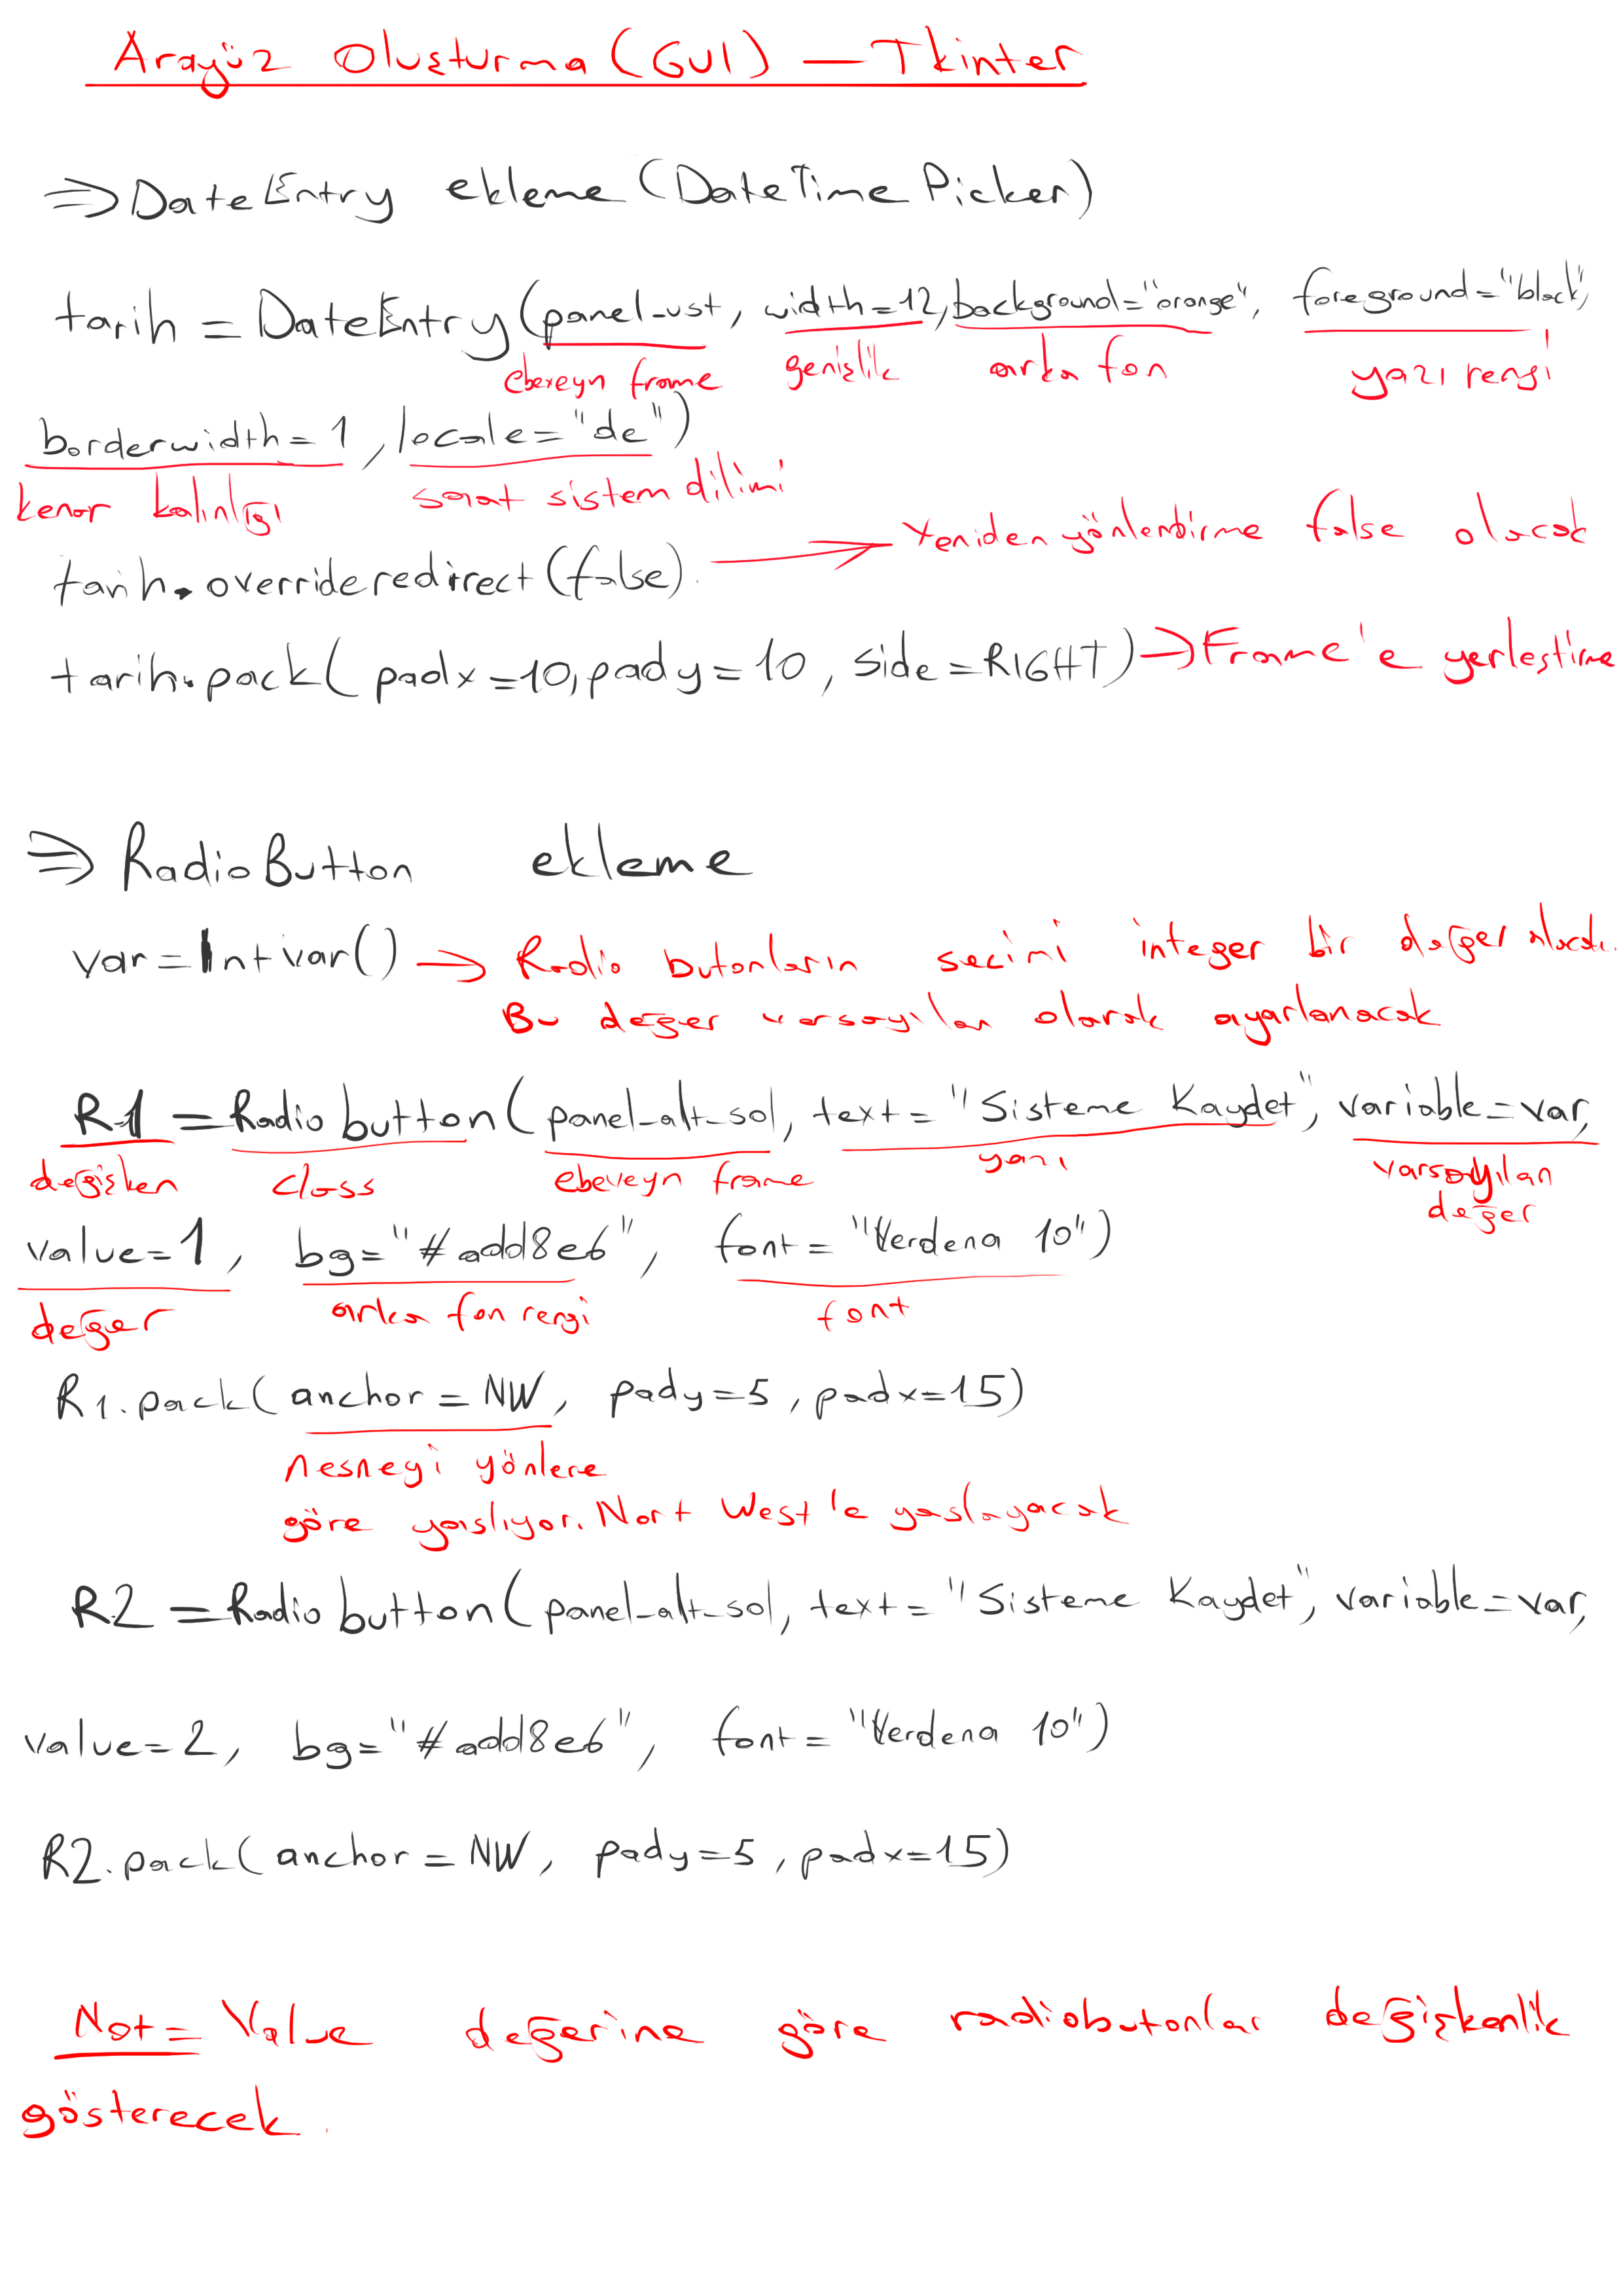 Arayüz Oluşturma (GUI) — Tkinter
⇒ DateEntry ekleme (DateTime Picker)
tarih = DateEntry (panel_ust, width=12, background="orange", foreground="black",
ebeveyn frame genişlik arka fon yazı rengi
borderwidth=1, locale="de")
kenar kalınlığı saat sistem dilimi
tarih.overrideredirect(false) → Yeniden yönlendirme false olacak
tarih.pack( padx=10, pady=10, side=RIGHT) → Frame'e yerleştirme
⇒ RadioButton ekleme
var=Intvar() → Radio butonların secimi integer bir değer alacak.
Bu değer varsayılan olarak ayarlanacak
R1 = Radiobutton(panel_alt_sol, text="Sisteme Kaydet", variable=var,
değişken class ebeveyn frame yazı varsayılan
değer
value=1, bg="#add8e6", font="Verdena 10")
değer arka fon rengi font
R1.pack(anchor=NW, pady=5, padx=15)
nesneyi yönlere
göre yaslıyor. Nort West'e yaslayacak
R2 = Radiobutton(panel_alt_sol, text="Sisteme Kaydet", variable=var,
value=2, bg="#add8e6", font="Verdena 10")
R2.pack(anchor=NW, pady=5, padx=15)
Not= Value değerine göre radiobutonlar değişkenlik
gösterecek.